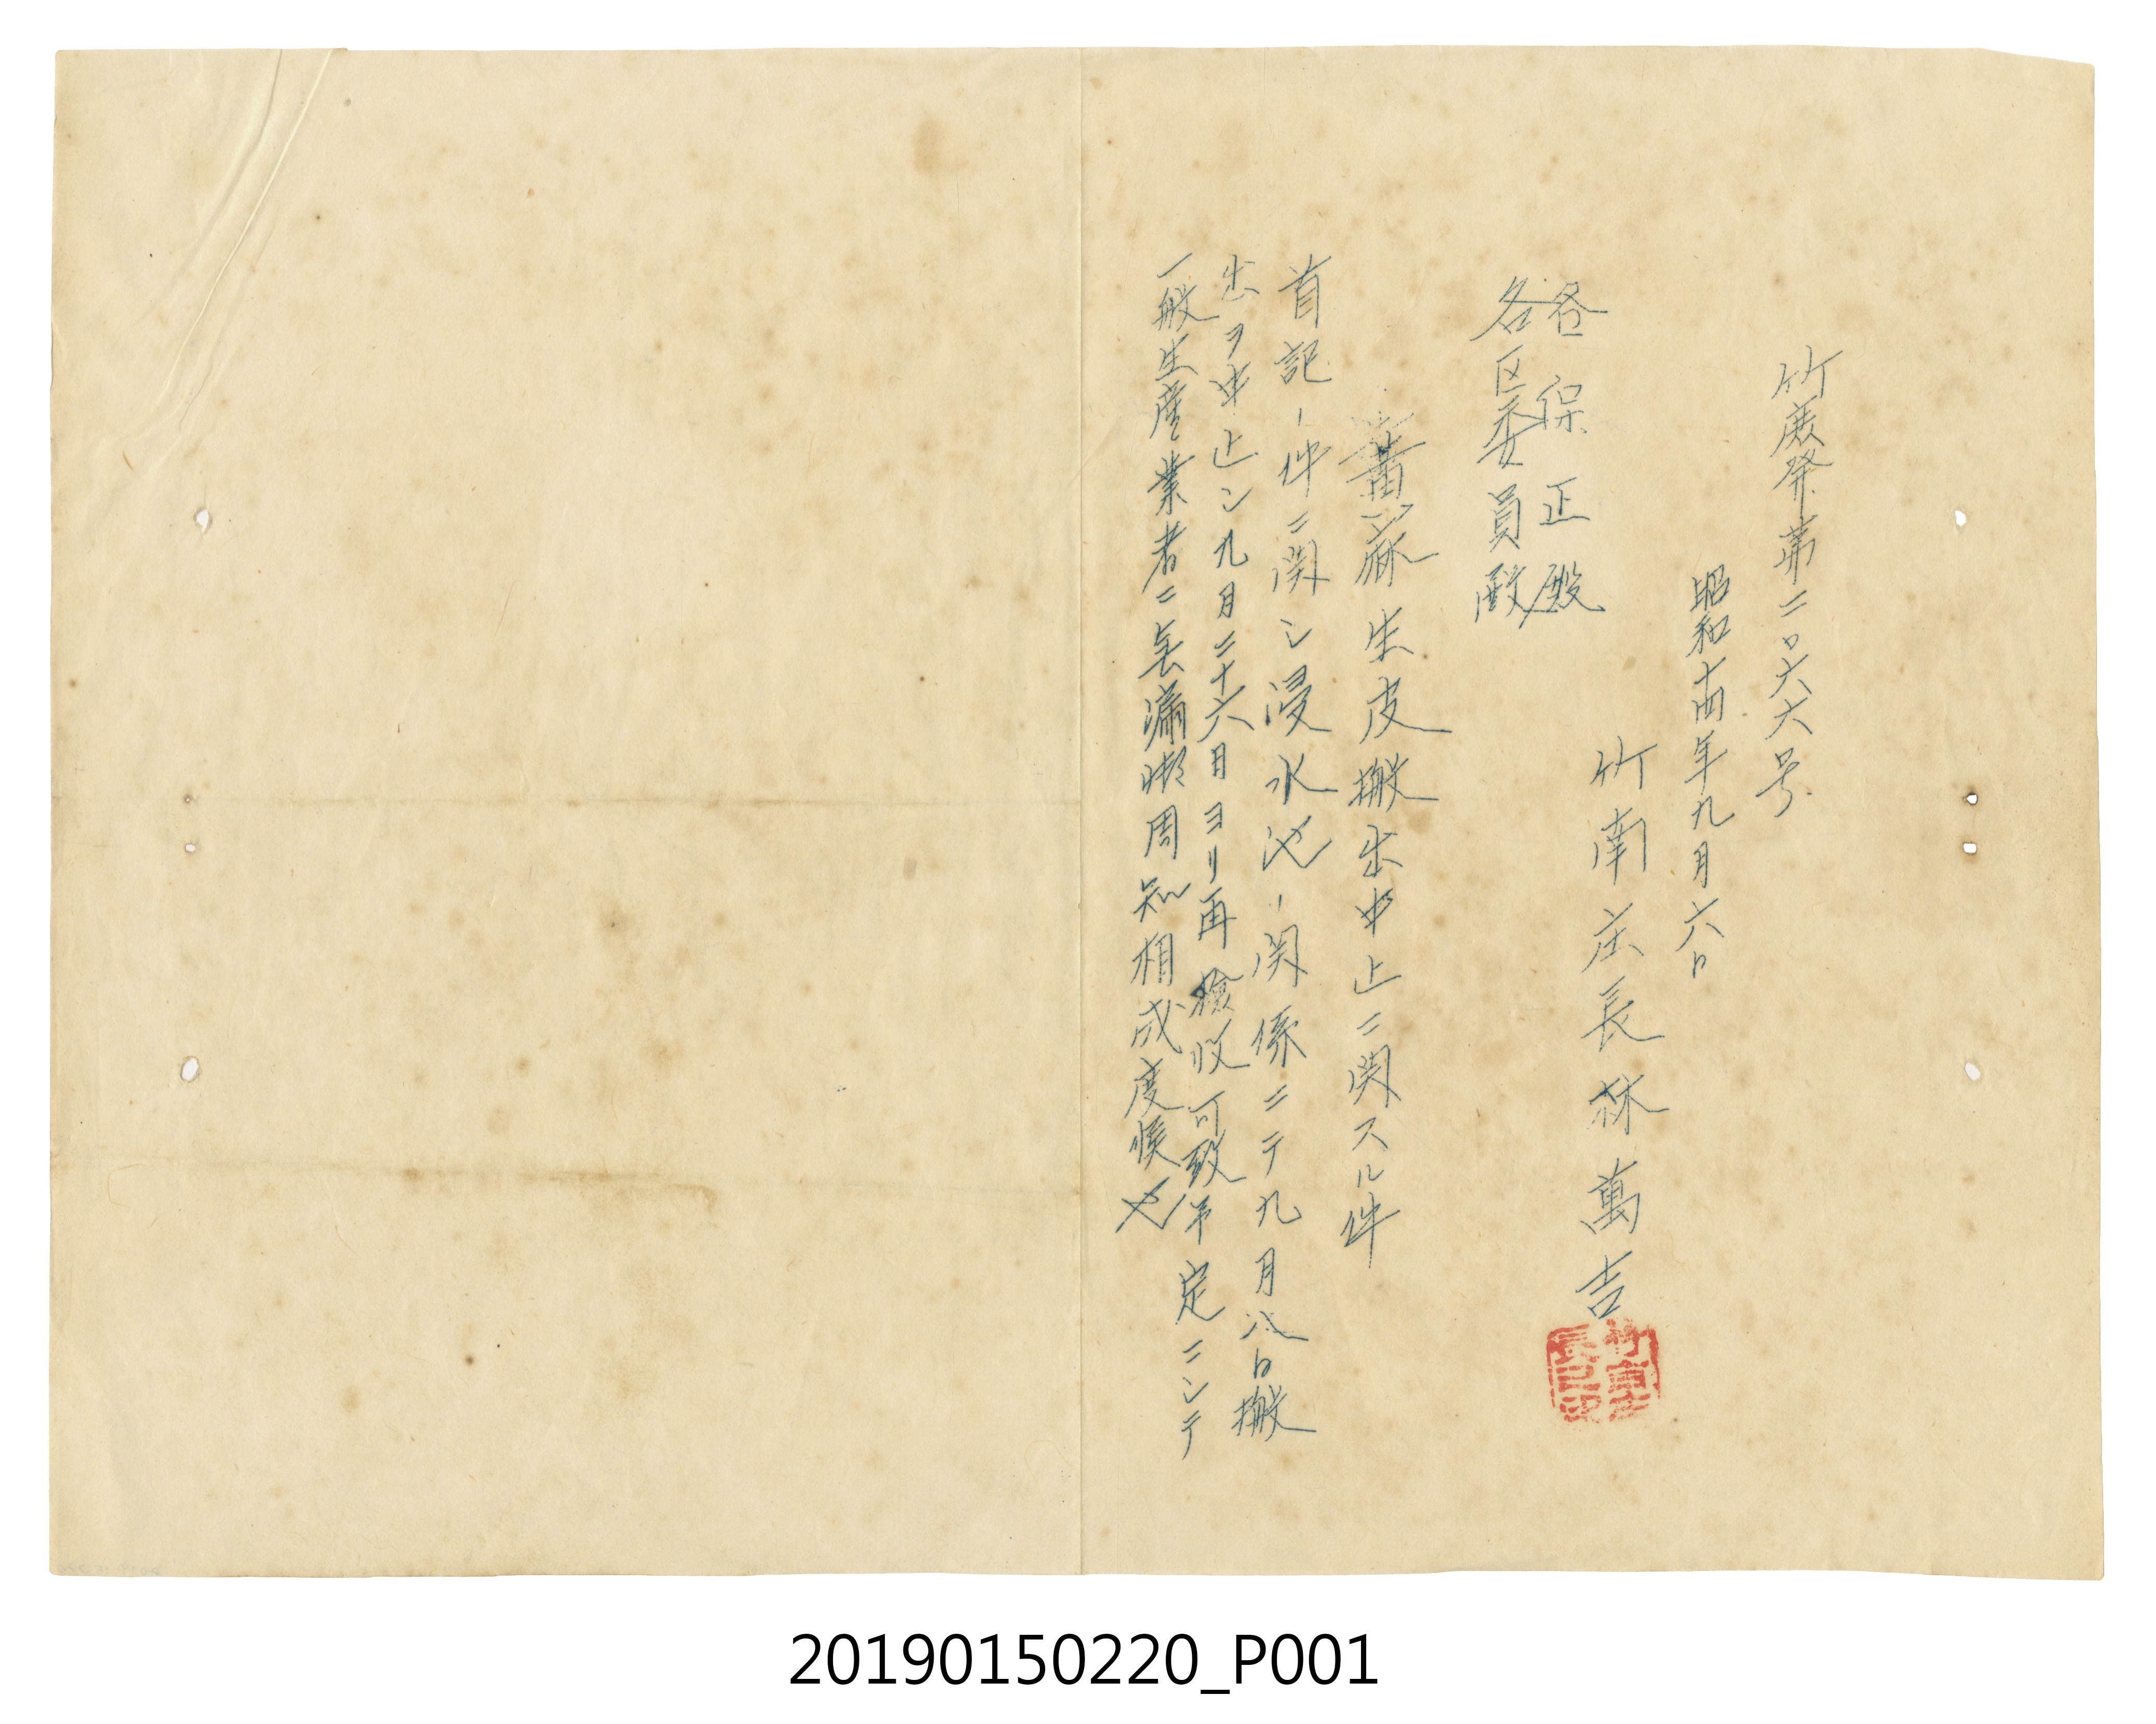 竹庶発第二〇六六号
昭和十四年九月六日
竹南庄長林萬吉
各保正殿
各区委員殿
黄麻生皮搬出中止ニ関スル件
首記ノ件ニ関シ浸水池ノ関係ニテ九月八日搬
出ヲ中止シ九月二十六日ヨリ再檢收可致予定ニシテ
一般生産業者ニ無漏様周知相成度候也
20190150220_P001